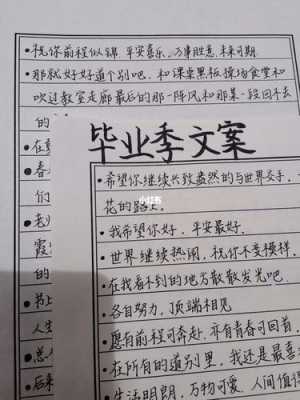 •祝你前程似锦.平安喜乐.万事胜意.未来可期
•那就好好道个别吧,和课桌黑板操场食堂和
吹过教室走廊最后的那一阵风和那某一段回不去
的
•在
•春
们
•老
霞
的
•书上
人生
•总
•后来
毕业季文案
小红书
•希望你继续兴致盎然的与世界交手,
花的路上。
•我希望你好,平安最好.
•世界继续热闹,祝你不变模样.
•在我看不到的地方散散发光吧.
•各自努力,顶端相见
•愿有前程可奔赴,亦有青春可回首.
•在所有的道别里,我还是最喜
•生活明朗,万物可爱.人间值得